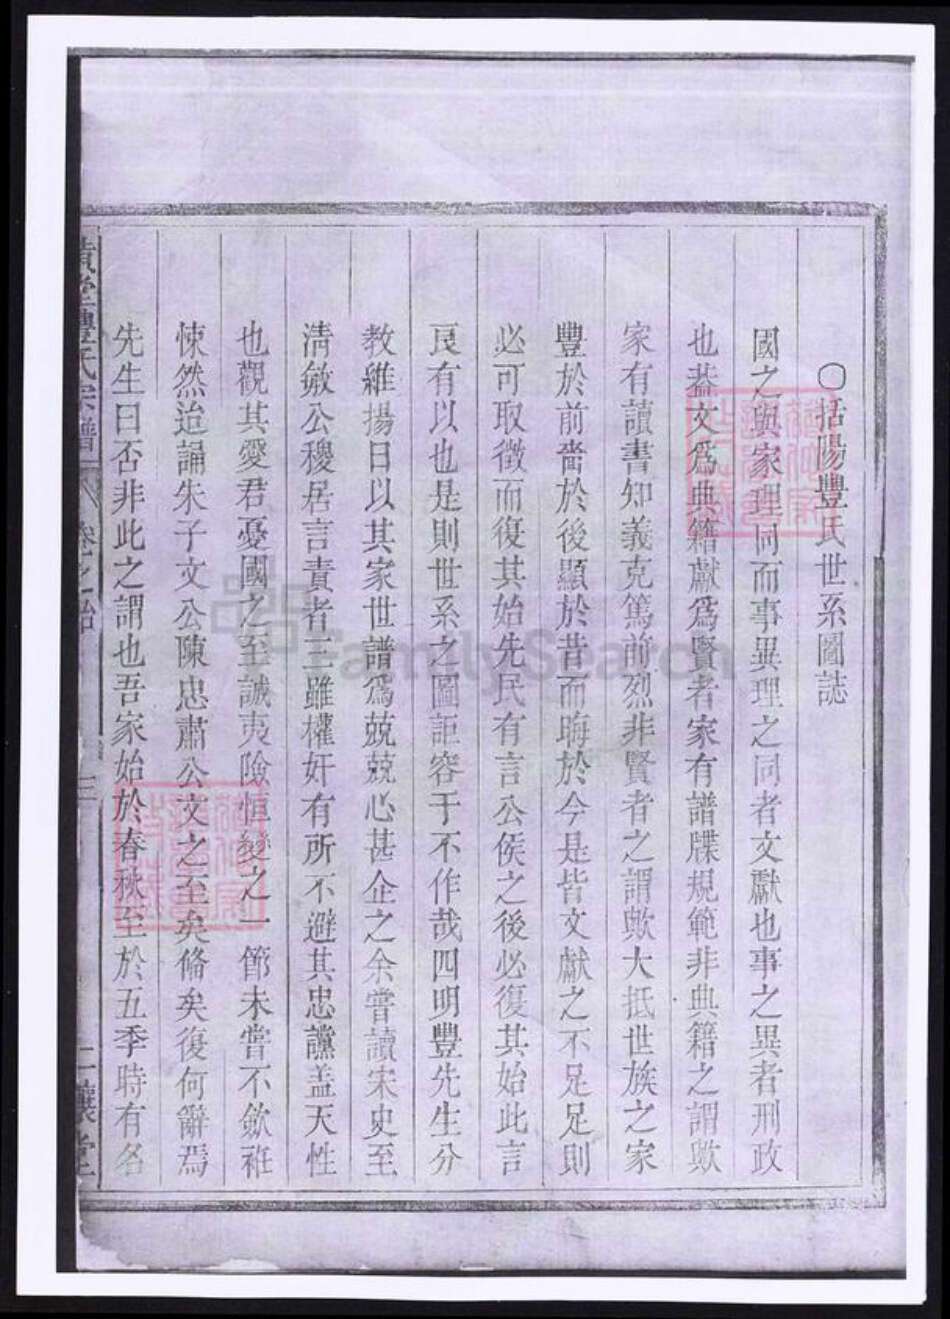 〇括陽豐氏世系圖誌
國之與家理同而事異理之同者文獻也事之異者刑政
也葢文爲典籍獻爲賢者家有譜牒規範非典籍之謂歟
家有讀書知義克篤前烈非賢者之謂歟大抵世族之家
豐於前嗇於後顯於昔而晦於今是皆文獻之不足足則
必可取徵而復其始先民有言公侯之後必復其始此言
良有以也是則世系之圖詎容于不作哉四明豐先生分
教維揚日以其家世譜爲兢兢心甚企之余嘗讀宋史至
清敏公稷居言責者三雖權奸有所不避其忠讜盖天性
也觀其愛君憂國之至誠夷險恒變之一節未嘗不歛袵
悚然迨誦朱子文公陳忠肅公文之至矣脩矣復何辭焉
先生曰否非此之謂也吾家始於春秋至於五季時有名
豐氏宗譜
卷之首
三
二讓堂
FamilySearch